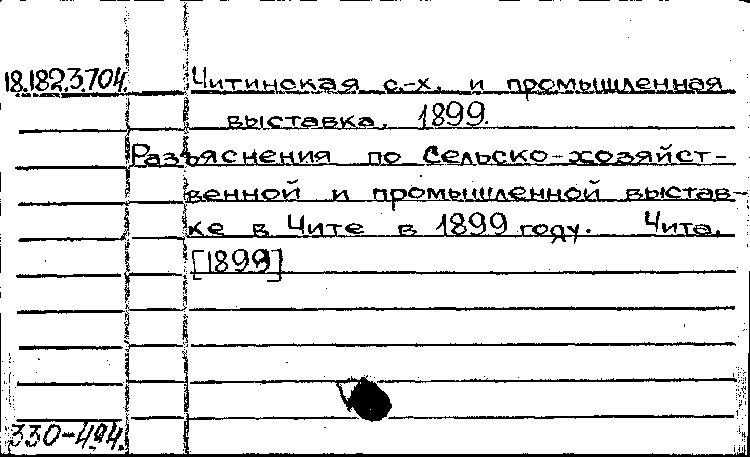 18.182.3.704. Читинская с.-х. и промышленная
выставка. 1899.
Разъяснения по Сельско-хозяйст-
венной и промышленной выстав-
ке в Чите в 1899 году. Чита.
[1899]
330-494.